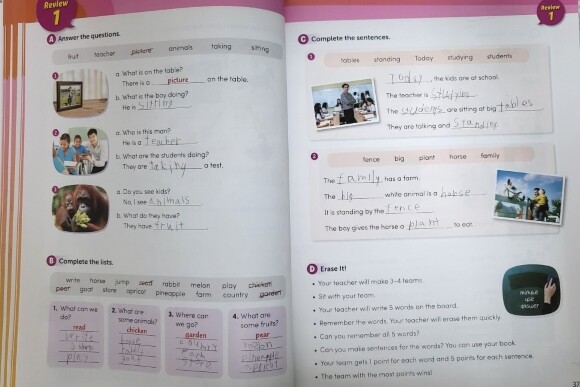 Review
1
A Answer the questions.
fruit teacher picture animals taking sitting
1
a. What is on the table?
There is a picture on the table.
b. What is the boy doing?
He is sitting
2
a. Who is this man?
He is a teacher
b. What are the students doing?
They are taking a test.
3
a. Do you see kids?
No, I see animals
b. What do they have?
They have fruit
B Complete the lists.
write horse jump read rabbit melon play chicken
pear goat store apricot pineapple farm country garden
1. What can we do?
read
write
jump
play
2. What are some animals?
chicken
horse
rabbit
goat
3. Where can we go?
garden
country
farm
store
4. What are some fruits?
pear
melon
pineapple
apricot
Review
1
C Complete the sentences.
1
tables standing Today studying students
Today, the kids are at school.
The teacher is
The are sitting at big tables
They are talking and standing
2
fence big plant horse family
The family has a farm.
The big white animal is a horse
It is standing by the fence
The boy gives the horse a plant to eat.
D Erase It!
• Your teacher will make 3-4 teams.
• Sit with your team.
• Your teacher will write 5 words on the board.
• Remember the words. Your teacher will erase them quickly.
• Can you remember all 5 words?
• Can you make sentences for the words? You can use your book.
• Your team gets 1 point for each word and 5 points for each sentence.
• The team with the most points wins!